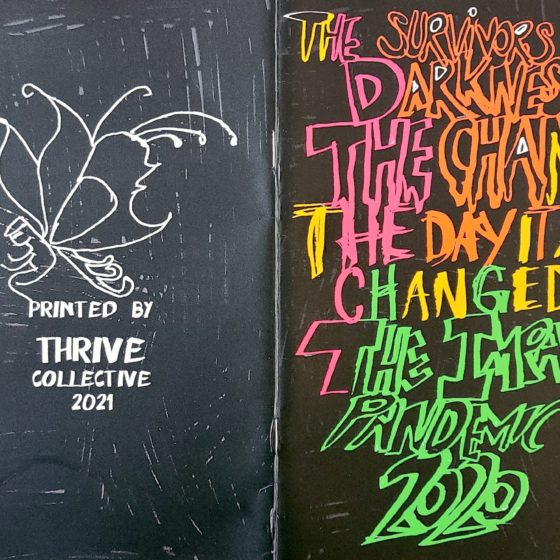 PRINTED BY
THRIVE
COLLECTIVE
2021
THE SURVIVORS
DARKNES
THE CHAN
THE DAY IT
CHANGED
THE IMPA
PANDEMIC
2020